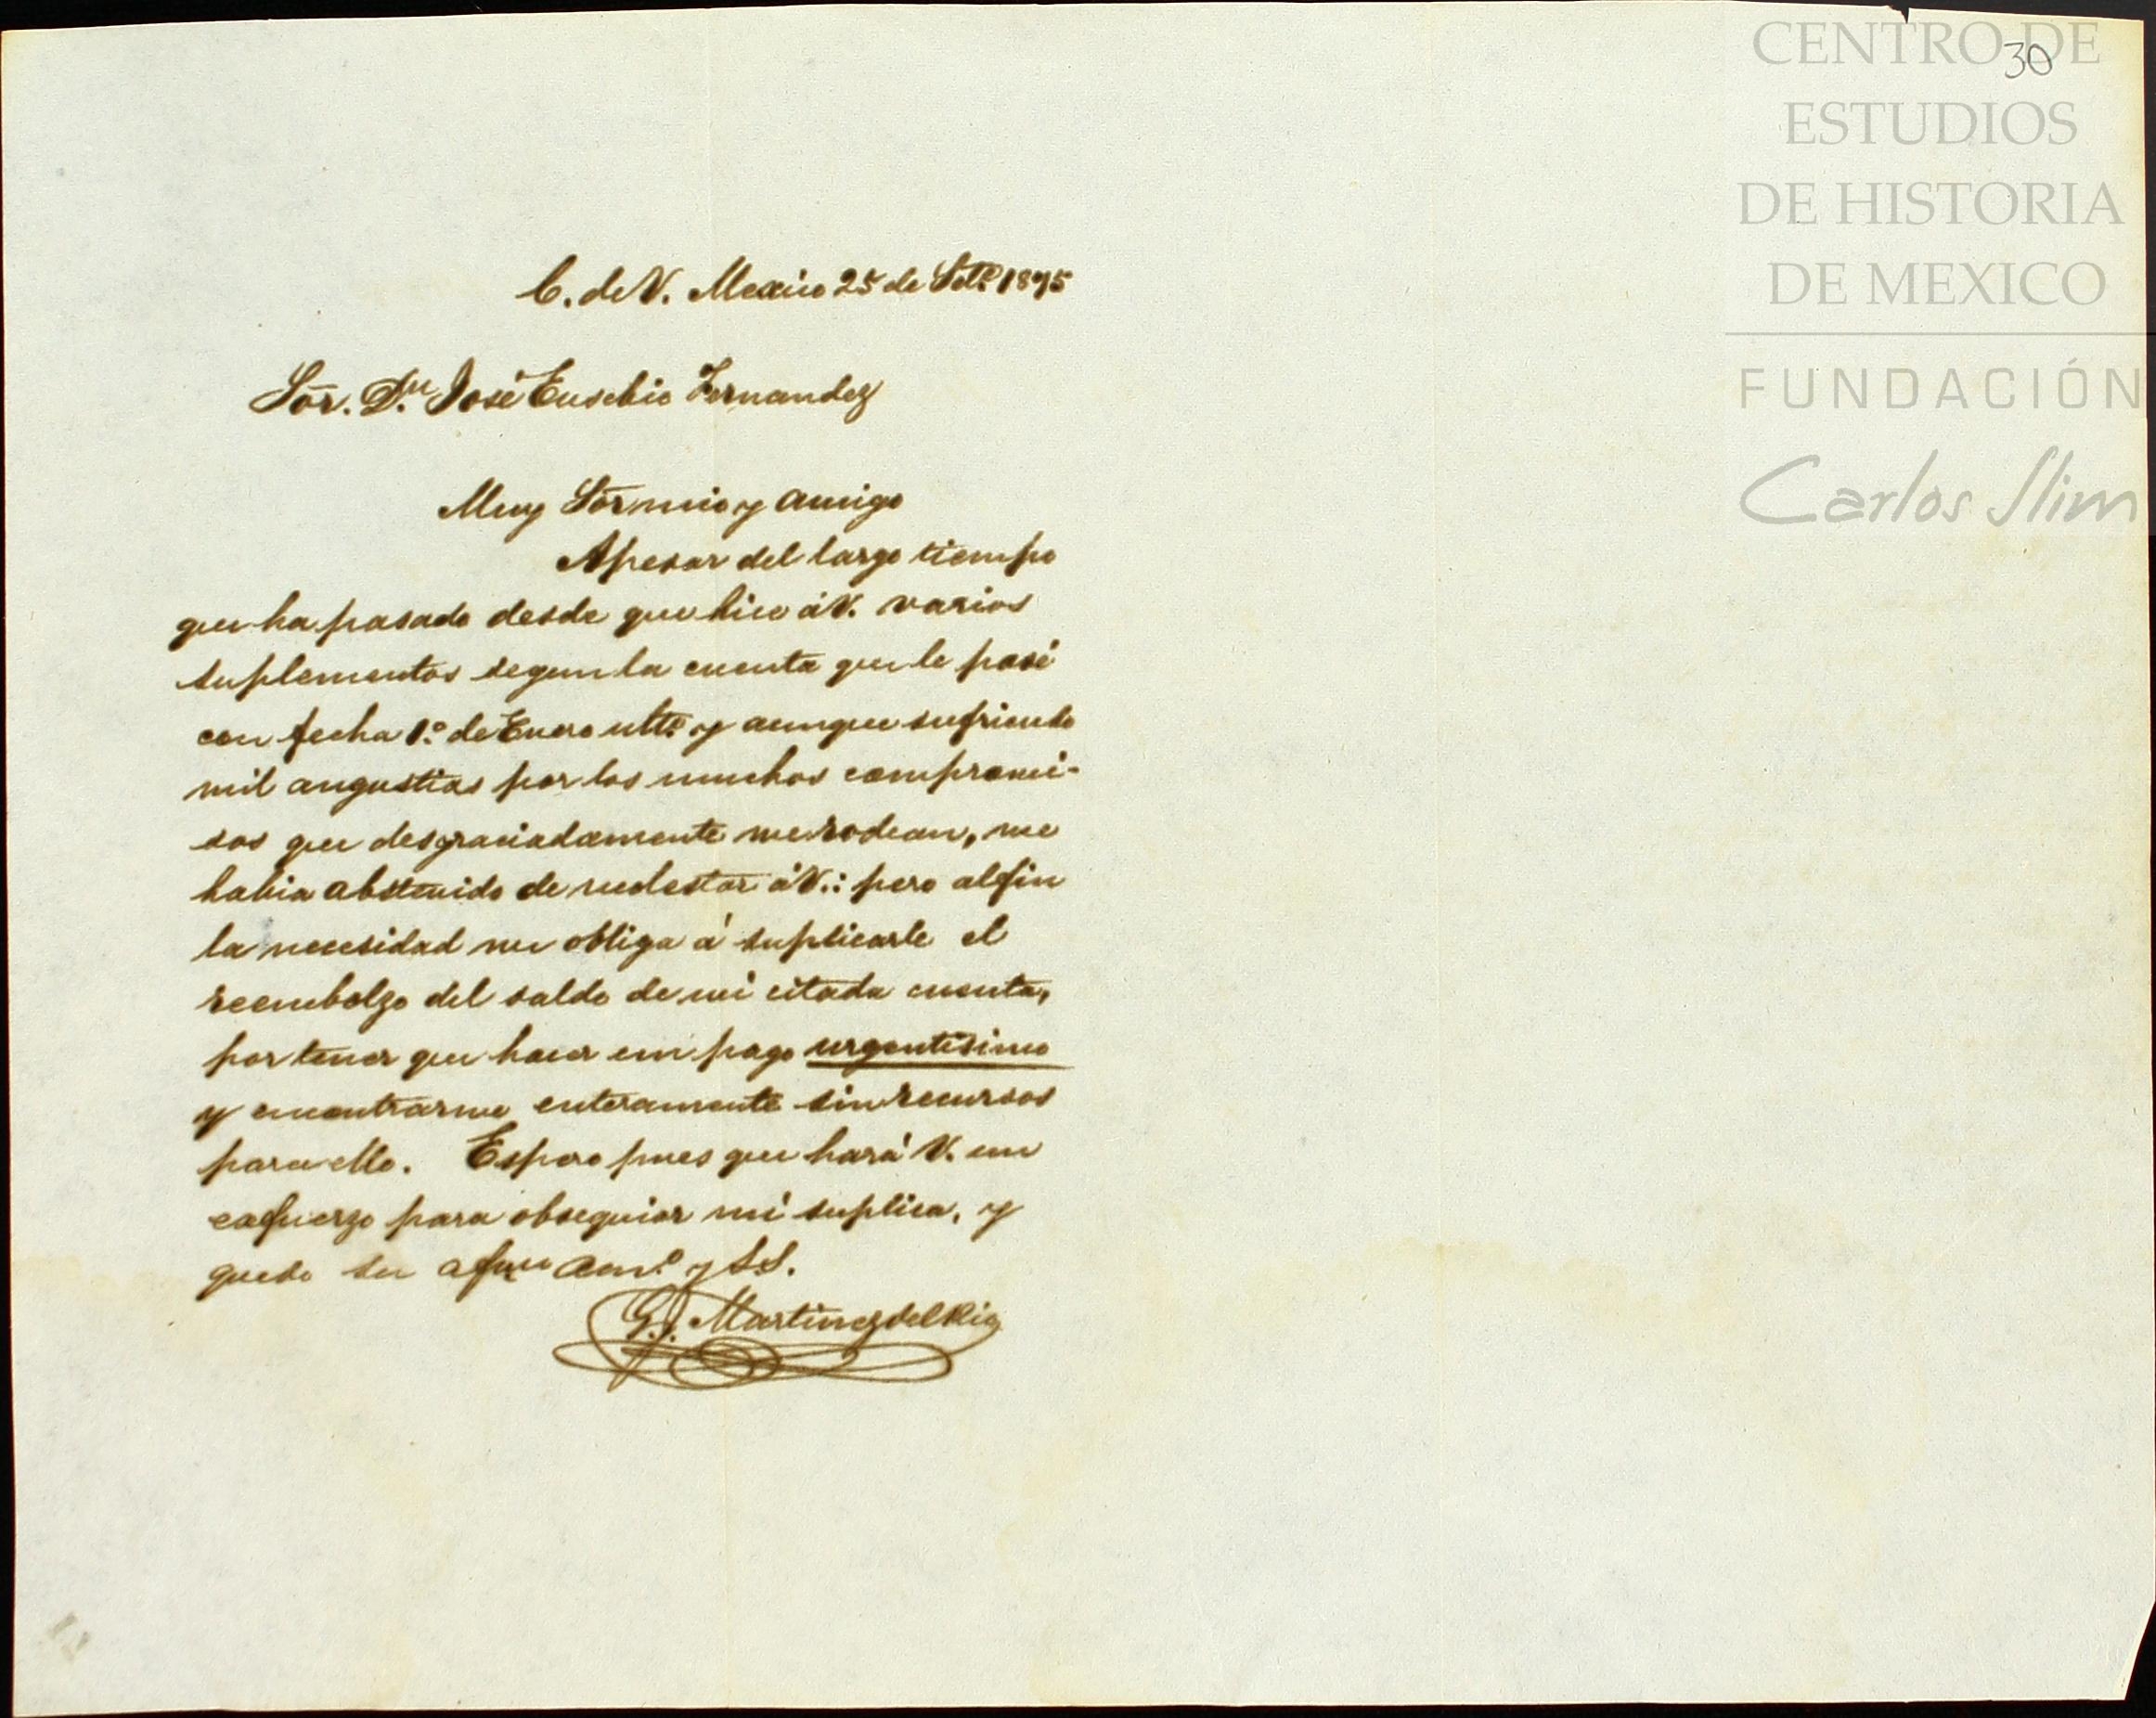 C. de V. Mexico 25 de Set.e 1875
Sōr. D.n José Eusebio Fernandez
Muy Sōr mio y amigo
Apesar del largo tiempo
que ha pasado desde que hice á V. varios
suplementos segun la cuenta que le pasé
con fecha 1.o de Enero ulto. y aunque sufriendo
mil angustias por los muchos compromi-
sos que desgraciadamente me rodean, me
habia abstenido de molestar á V.: pero al fin
la necesidad me obliga á suplicarle el
reembolzo del saldo de mi citada cuenta,
por tener que hacer un pago urgentisimo
y encontrarme enteramente sin recursos
para ello. Espero pues que hará V. un
esfuerzo para obsequiar mi suplica, y
quedo su afmo am.o y SS.
G. Martinez del Rio
30
CENTRO DE
ESTUDIOS
DE HISTORIA
DE MEXICO
FUNDACIÓN
Carlos Slim